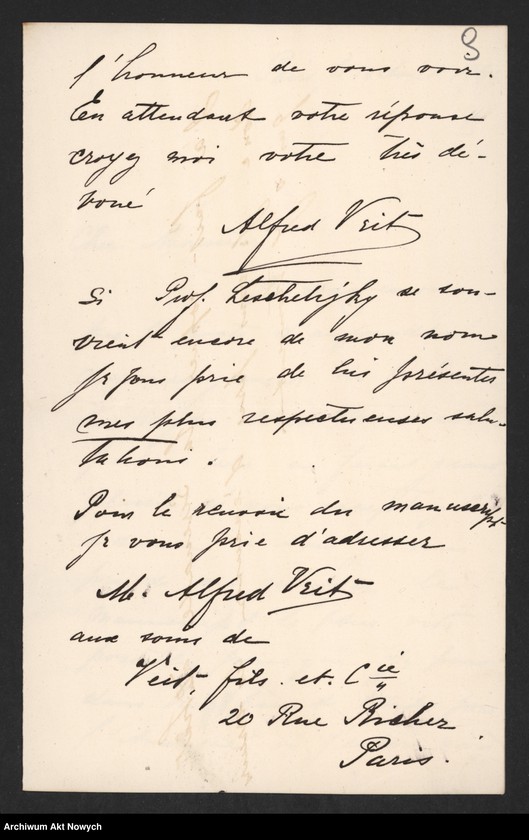 8
l'honneur de vous voir.
En attendant votre réponse
croyez moi votre très dé-
voué
Alfred Veit
Si Prof. Leschetizky se sou-
vient encore de mon nom
je vous prie de lui présenter
mes plus respectueuses salu-
tations.
Pour le renvoi du manuscript
je vous prie d'adresser
M. Alfred Veit
aux soins de
Veit, fils. et. Cie
20 Rue Richer
Paris.
Archiwum Akt Nowych